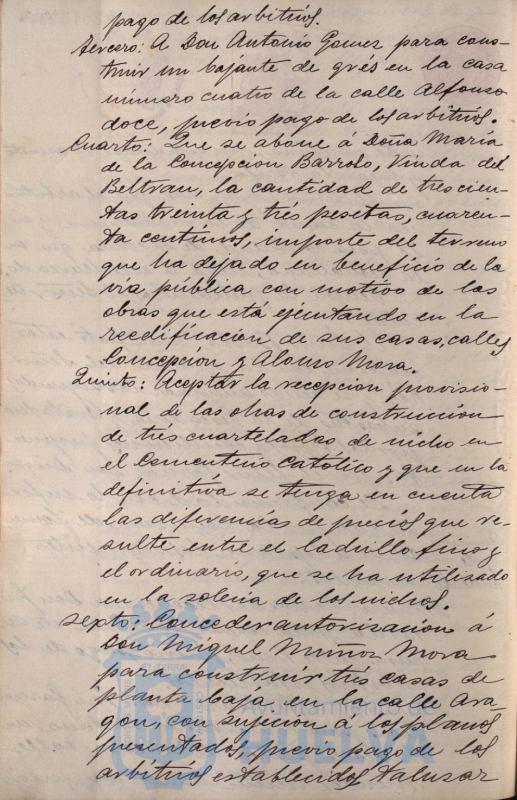 pago de los arbitrios.
Tercero: A Don Antonio Gomez para cons-
truir un bajante de grés en la casa
número cuatro de la calle Alfonso
doce, previo pago de los arbitrios.
Cuarto: Que se abone á Doña María
de la Concepcion Barroso, Viuda del
Beltran, la cantidad de trescien-
tas treinta y trés pesetas, cuaren-
ta centimos, importe del terreno
que ha dejado en beneficio de la
via pública con motivo de las
obras que está ejecutando en la
reedificacion de sus casas, calles
Concepcion y Alonso Mora.
Quinto: Aceptar la recepcion provisio-
nal de las obras de construcción
de trés cuarteladas de nicho en
el Cementerio Católico y que en la
definitiva se tenga en cuenta
las diferencias de precios que re-
sulte entre el ladrillo fino y
el ordinario, que se ha utilizado
en la soleria de los nichos.
Sexto: Conceder autorizacion á
Don Miguel Muñoz Mora
para construir trés casas de
planta baja en la calle Ara-
gon, con sujecion á los planos
presentados, previo pago de los
arbitrios establecidos
Ayuntamiento de
HUELVA